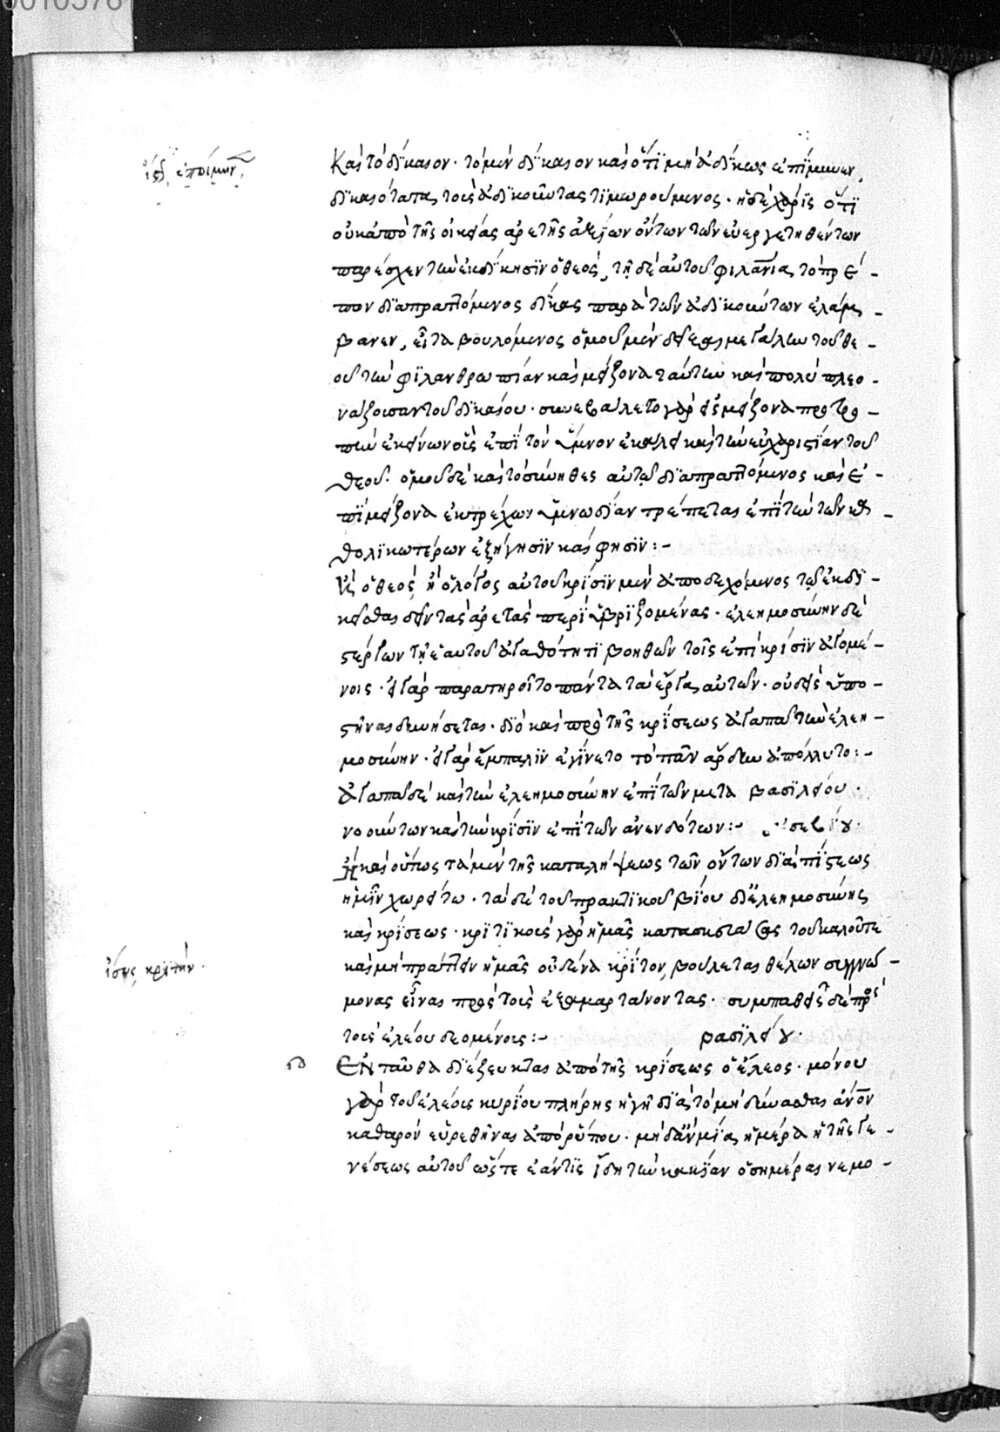 0010578
καὶ τὸ δίκαιον· τὸ μὲν δίκαιον καὶ ὅτι μὴ ἀδίκως ἐπήμυνεν,
δικαιότατα τοὺς ἀδικοῦντας τιμωρούμενος· ἡ δὲ χάρις ὅτι
οὐκ ἀπὸ τῆς οἰκείας ἀρετῆς ἀξίων ὄντων τῶν εὐεργετηθέντων
παρέσχεν τὴν ἐκδίκησιν ὁ θεὸς, τῇ δὲ αὐτοῦ φιλανίᾳ τὸ πρέ-
πον διαπραττόμενος δίκας παρὰ τῶν ἀδικούντων ἐλάμ-
βανεν, εἶτα βουλόμενος ὁμοῦ μὲν δεῖξαι μεγάλην τοῦ θε-
οῦ τὴν φιλανθρωπίαν καὶ μείζονα ταύτην καὶ πολὺ πλεο-
νάζουσαν τοῦ δικαίου· συνεβάλετο γὰρ εἰς μείζονα προτρο-
πὴν ἐκείνων οὓς ἐπὶ τὸν ὕμνον ἐκάλει καὶ τὴν εὐχαριστίαν τοῦ
θεοῦ· ὁμοῦ δὲ καὶ τὸ σύνηθες αὐτῷ διαπραττόμενος καὶ ἐ-
πὶ μείζονα ἐκτρέχων ὑμνωδίαν τρέπεται ἐπὶ τὴν τῶν κα-
θολικωτέρων ἐξήγησιν καί φησιν:-
ὁ θεὸς ἢ ὁ λόγος αὐτοῦ κρίσιν μὲν ἀποδεχόμενος τῷ ἐκδι-
κεῖσθαι δεῖν τὰς ἀρετὰς περιϋβριζομένας· ἐλεημοσύνην δὲ
στέργων τῇ ἑαυτοῦ ἀγαθότητι βοηθῶν τοῖς ἐπὶ κρίσιν ἀγομέ-
νοις· εἰ γὰρ παρατηροῖτο πάντα τὰ ἔργα αὐτῶν· οὐδεὶς ὑπο-
στῆναι δυνήσεται· διὸ καὶ πρὸ τῆς κρίσεως ἀγαπᾷ τὴν ἐλεη-
μοσύνην· εἰ γὰρ ἔμπαλιν ἐγίνετο τὸ πᾶν ἄρδην ἀπόλλυτο:-
ἀγαπᾷ δὲ καὶ τὴν ἐλεημοσύνην ἐπὶ τῶν μετα βασιλείου·
νοούντων καὶ τὴν κρίσιν ἐπὶ τῶν ἀνενδότων:-
ἢ καὶ οὕτως τὰ μὲν τῆς καταλήψεως τῶν ὄντων διὰ πίστεως
ἡμῖν χωρείτω· τὰ δὲ τοῦ πρακτικοῦ βίου δι' ἐλεημοσύνης
καὶ κρίσεως· κριτικοὺς γὰρ ἡμᾶς κατασκευάσας τοῦ καλοῦ τε
καὶ μὴ πράττειν ἡμᾶς οὐδένα κρίτον, βούλεται θέλων συγγνώ-
ἴσως κριτὴν·
μονας εἶναι πρὸς τοὺς ἐξαμαρτάνοντας· συμπαθεῖς δὲ πρὸς
τοὺς ἐλέου δεομένους:- βασιλείου·
Ἐνταῦθα διέζευκται ἀπὸ τῆς κρίσεως ὁ ἔλεος· μόνου
γὰρ τοῦ ἐλέους κυρίου πλήρης ἡ γῆ διὰ τὸ μὴ δύνασθαι ἄνον
καθαρὸν εὑρεθῆναι ἀπὸ ῥύπου· μηδ' ἂν μία ἡμέρα ᾖ τῆς γε-
νέσεως αὐτοῦ ὥστε ἐάν τις ἴδῃ τὴν κακίαν ὁσημέραι νεμο-